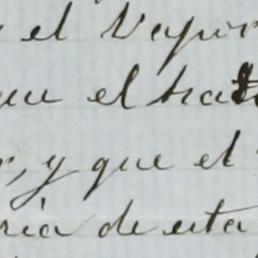 y el Vapor
que el trat
r, y que el
ria de esta